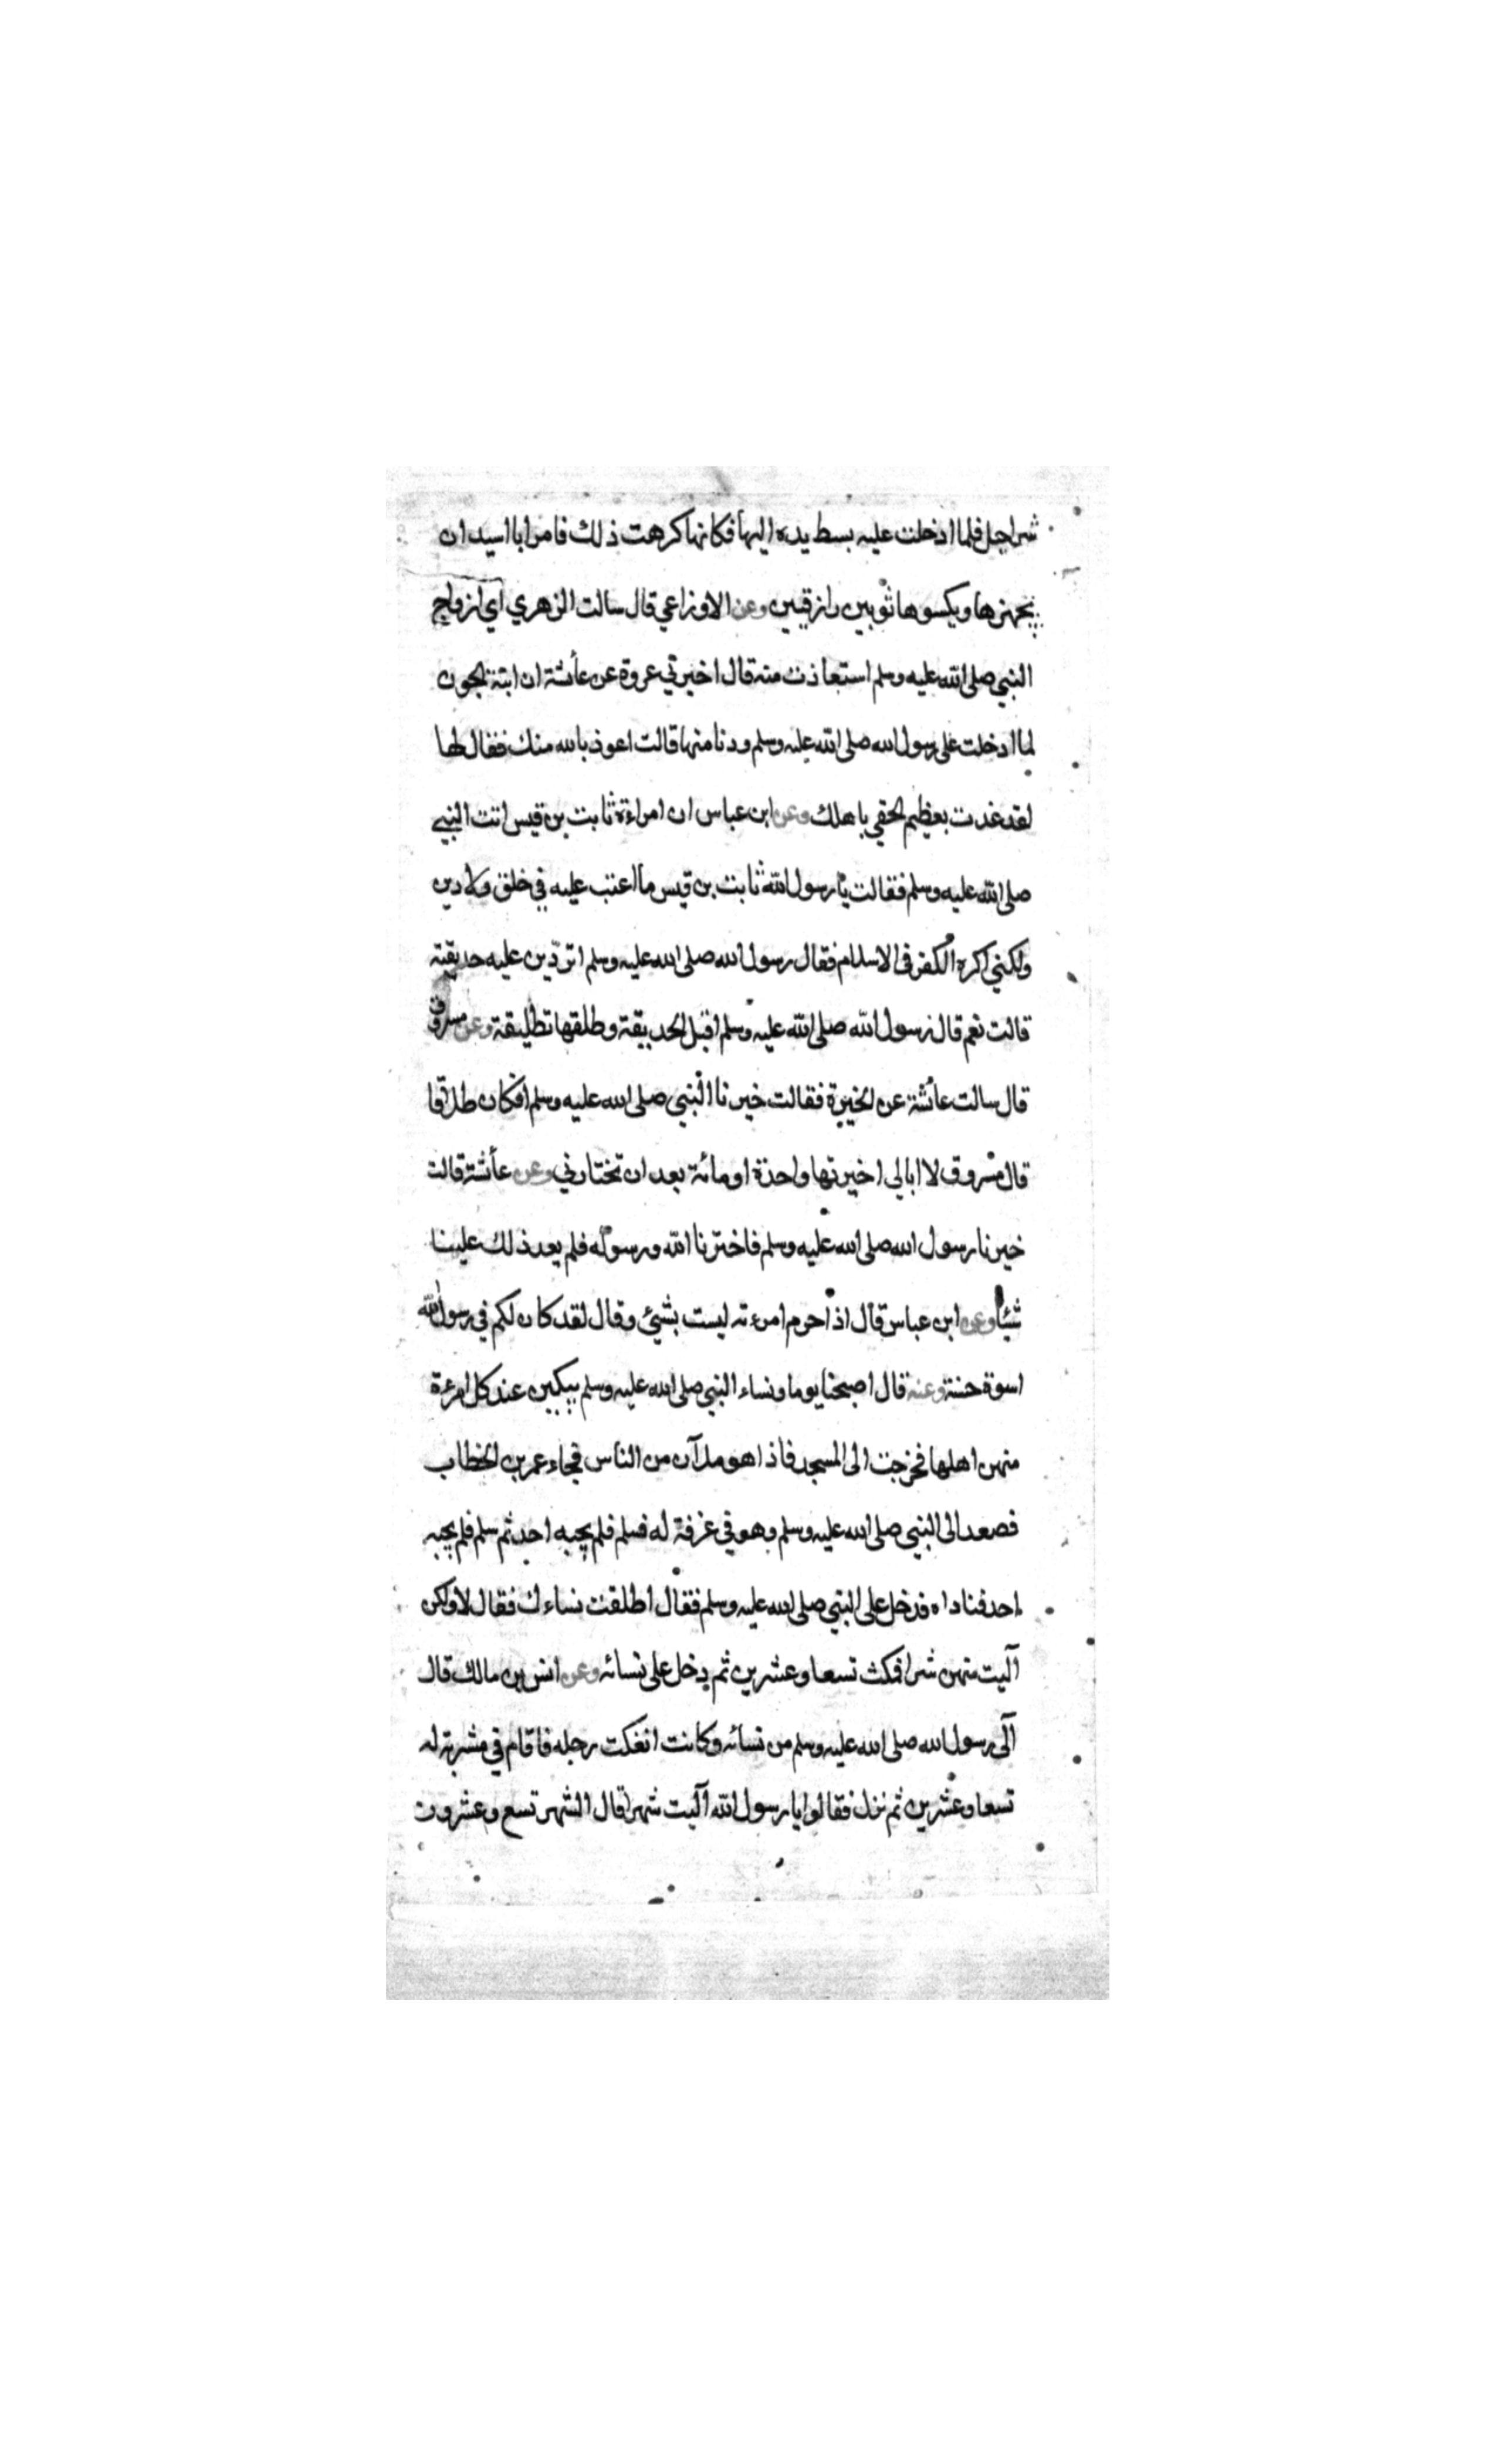 شراجل فلما ادخلت عليه بسط يده اليها فكانها كرهت ذلك فامر ابا اسيد ان
يجهزها ويكسوها ثوبين رازقيين وعن الاوزاعي قال سالت الزهري اي ازواج
النبي صلى الله عليه وسلم استعاذت منه قال اخبرني عروة عن عائشة ان ابنة الجون
لما ادخلت على رسول الله صلى الله عليه وسلم ودنا منها قالت اعوذ بالله منك فقال لها
لقد عذت بعظيم الحقي باهلك وعن ابن عباس ان امراءة ثابت بن قيس اتت النبي
صلى الله عليه وسلم فقالت يا رسول الله ثابت بن قيس ما اعتب عليه في خلق ولا دين
ولكني اكره الكفر في الاسلام فقال رسول الله صلى الله عليه وسلم اتردين عليه حديقته
قالت نعم قال رسول الله صلى الله عليه وسلم اقبل الحديقة وطلقها تطليقة وعن مسروق
قال سالت عائشة عن الخيرة فقالت خيرنا النبي صلى الله عليه وسلم افكان طلاقا
قال مسروق لا ابالي اخيرتها واحدة او مائة بعد ان تختارني وعن عائشة قالت
خيرنا رسول الله صلى الله عليه وسلم فاخترنا الله ورسوله فلم يعد ذلك علينا
شيئا وعن ابن عباس قال اذا حرم امرءته ليست بشيئ وقال لقد كان لكم في رسول الله
اسوة حسنة وعنه قال اصبحنا يوما ونساء النبي صلى الله عليه وسلم يبكين عند كل امرءة
منهن اهلها فخرجت الى المسجد فاذا هو ملآن من الناس فجاء عمر بن الخطاب
فصعد الى النبي صلى الله عليه وسلم وهو في غرفة له فسلم فلم يجبه احد ثم سلم فلم يجبه
احد فناداه فدخل على النبي صلى الله عليه وسلم فقال اطلقت نساءك فقال لا ولكن
آليت منهن شهرا فمكث تسعا وعشرين ثم دخل على نسائه وعن انس بن مالك قال
آلى رسول الله صلى الله عليه وسلم من نسائه وكانت انفكت رجله فاقام في مشربة له
تسعا وعشرين ثم نزل فقالوا يا رسول الله آليت شهرا قال الشهر تسع وعشرون